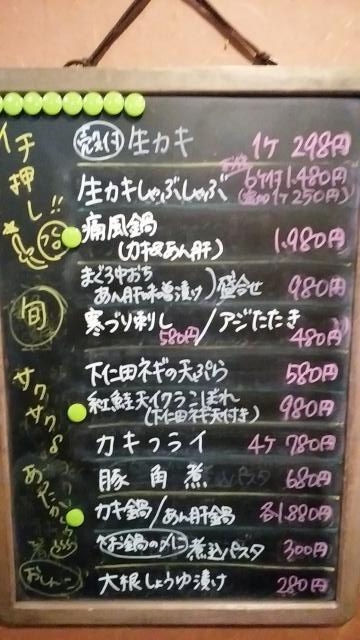 イチ押し!!
旬
サクサク
おしんこ
生カキ 1ケ 298円
生カキしゃぶしゃぶ 6ケ付1.480円
(追加1ケ250円)
痛風鍋 1.980円
(カキ&あん肝)
まぐろ中おち
あん肝味噌漬け)盛合せ 980円
寒ぶり刺し 580円/アジたたき 480円
下仁田ネギの天ぷら 580円
紅鮭天イクラこぼれ 980円
(下仁田ネギ天付き)
カキフライ 4ケ 780円
豚角煮 680円
カキ鍋/あん肝鍋 各1.880円
お鍋の〆に 煮込パスタ 300円
大根しょうゆ漬け 280円